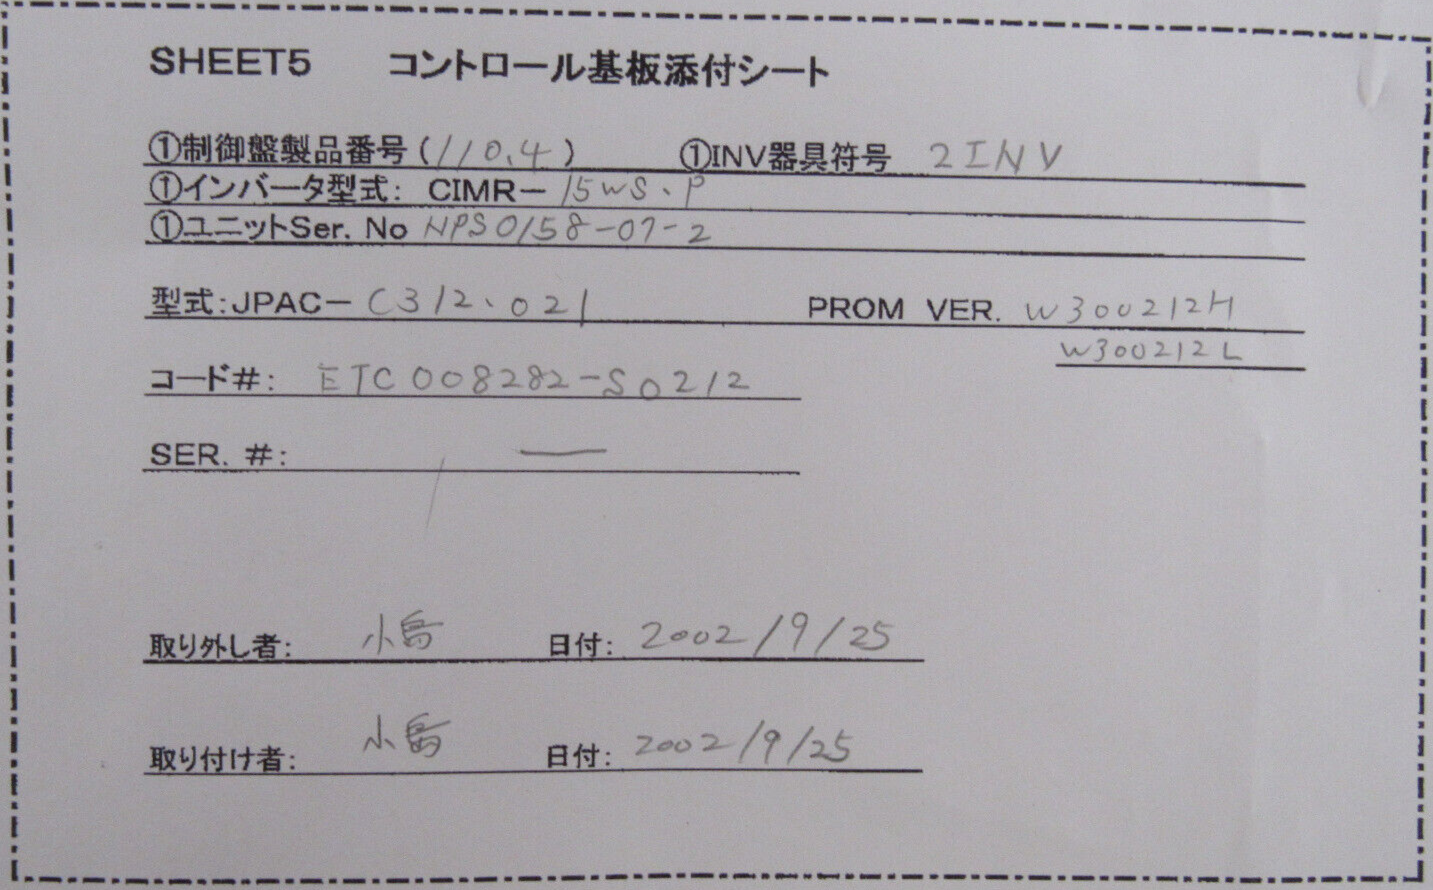 SHEET5 コントロール基板添付シート
①制御盤製品番号(110.4) ①INV器具符号 2INV
①インバータ型式: CIMR-15WS、P
①ユニットSer. No NPS0158-07-2
型式:JPAC-C312、021 PROM VER. W300212H
W300212L
コード#: ETC008282-S0212
SER. #: —
取り外し者: 小島 日付: 2002/9/25
取り付け者: 小島 日付: 2002/9/25